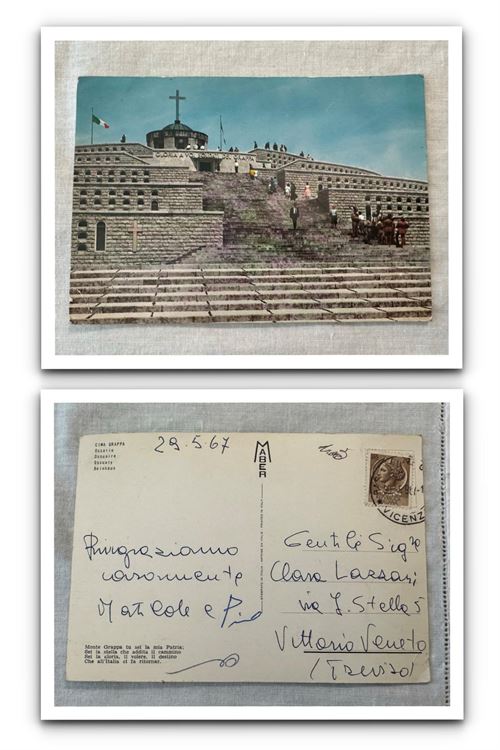 GLORIA A VOI SOLDATI DEL GRAPPA
CIMA GRAPPA
Ossario
Ossuaire
Ossuary
Beinhaus
29.5.67
MABER
VICENZ
Ringraziamo
caramente
Matilde e Pia
Gentile Sig.ne
Clara Lazzari
via J. Stella 5
Vittorio Veneto
(Treviso)
Monte Grappa tu sei la mia Patria:
Sei la stella che addita il cammino
Sei la gloria, il volere, il destino
Che all'Italia ci fa ritornar.